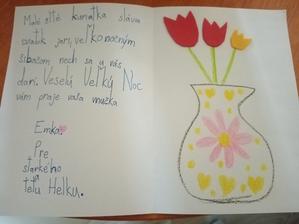 Malé žlté kuriatka slávia
sviatok jari, veľkonočným
šibačom nech sa u vás
darí. Veselú Veľkú Noc
vám praje vaša
Emka.
Pre
starkého
a
tetu Helku.